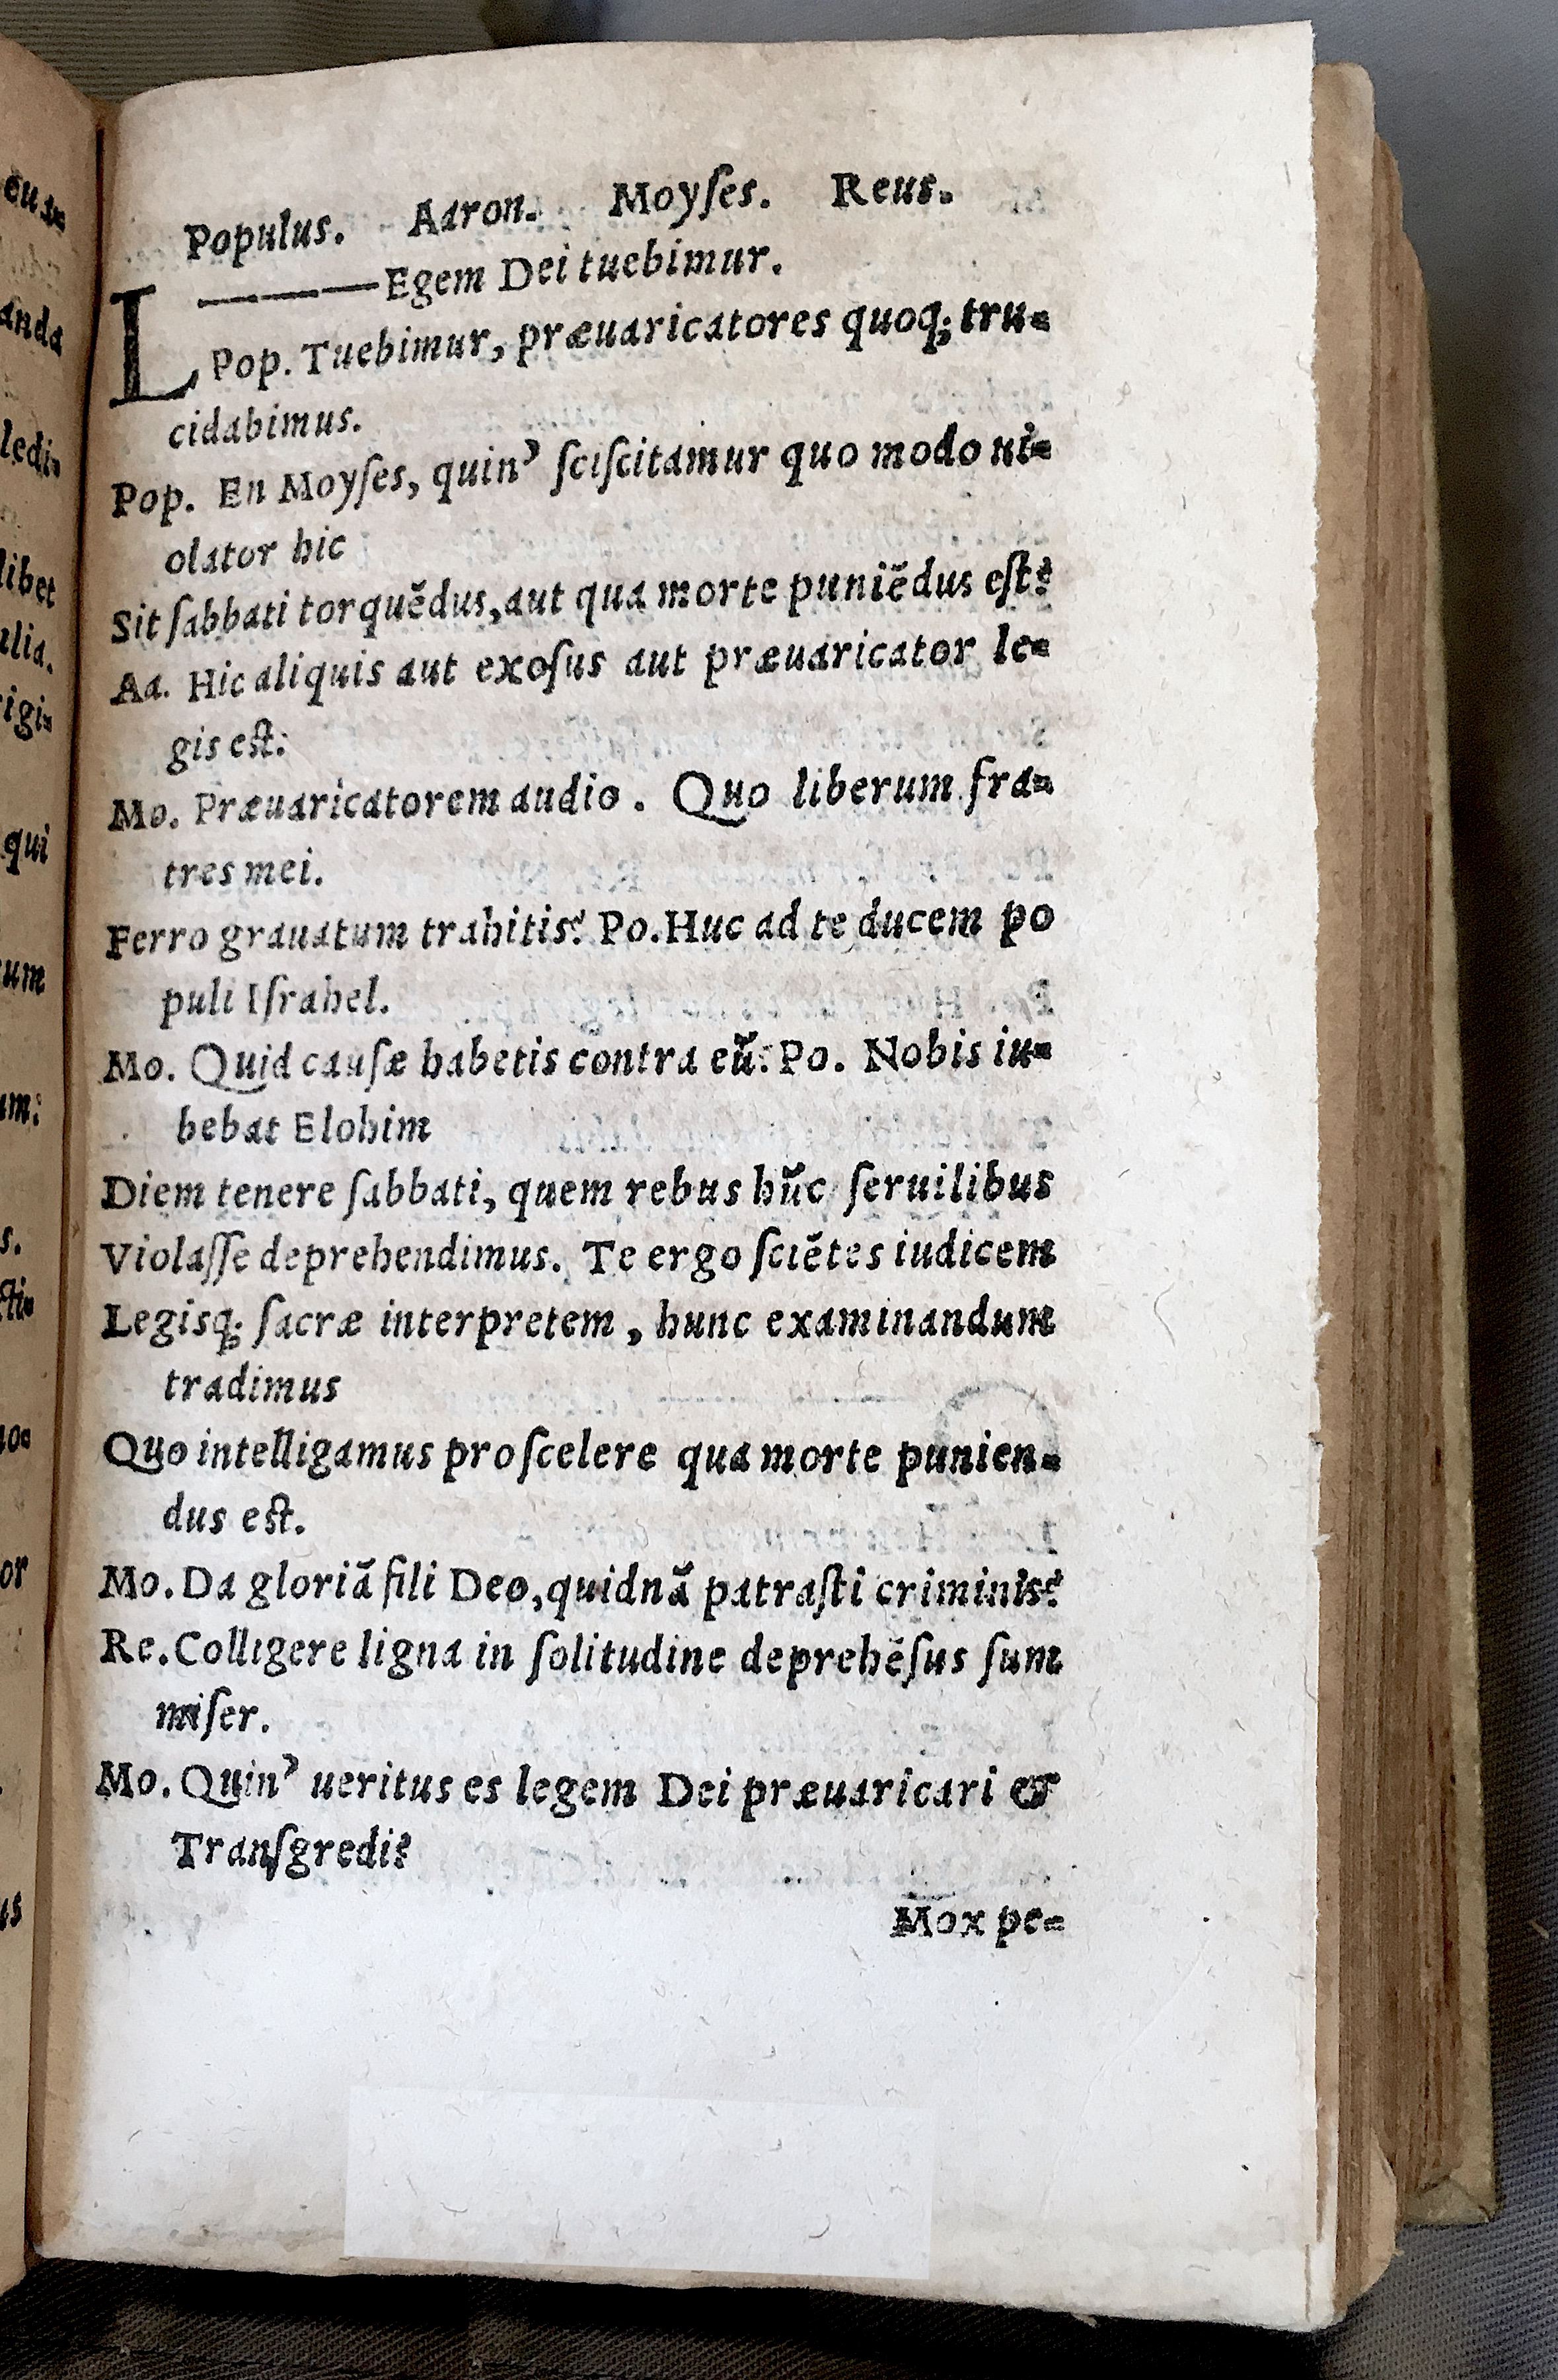 Populus. Aaron. Moyſes. Reus.
L ———Egem Dei tuebimur.
Pop. Tuebimur, præuaricatores quoq; tru=
cidabimus.
Pop. En Moyſes, quin’ ſciſcitamur quo modo ui=
olator hic
Sit ſabbati torquēdus, aut qua morte puniēdus eſt?
Aa. Hic aliquis aut exoſus aut præuaricator le=
gis eſt:
Mo. Præuaricatorem audio. Quo liberum fra=
tres mei.
Ferro grauatum trahitis? Po. Huc ad te ducem po
puli Iſrahel.
Mo. Quid cauſæ habetis contra eū: Po. Nobis iu=
bebat Elohim
Diem tenere ſabbati, quem rebus hūc ſeruilibus
Violaſſe deprehendimus. Te ergo ſciētes iudicem
Legisq; ſacræ interpretem, hunc examinandum
tradimus
Quo intelligamus pro ſcelere qua morte punien=
dus eſt.
Mo. Da gloriā fili Deo, quidnā patraſti criminis?
Re. Colligere ligna in ſolitudine deprehēſus ſum
miſer.
Mo. Quin’ ueritus es legem Dei præuaricari &
Tranſgredi?
Mox pe=